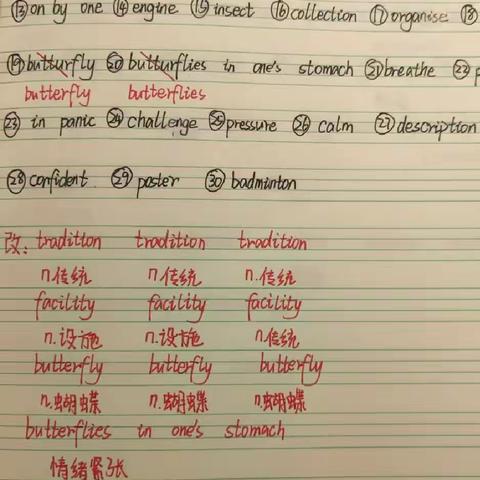 ⑬on by one ⑭engine ⑮insect ⑯collection ⑰organise ⑱
⑲butturfly ⑳butturflies in one's stomach ㉑breathe ㉒
butterfly butterflies
㉓in panic ㉔challenge ㉕pressure ㉖calm ㉗description
㉘confident ㉙poster ㉚badminton
改: tradition tradition tradition
n.传统 n.传统 n.传统
facility facility facility
n.设施 n.设施 n.传统
butterfly butterfly butterfly
n.蝴蝶 n.蝴蝶 n.蝴蝶
butterflies in one's stomach
情绪紧张